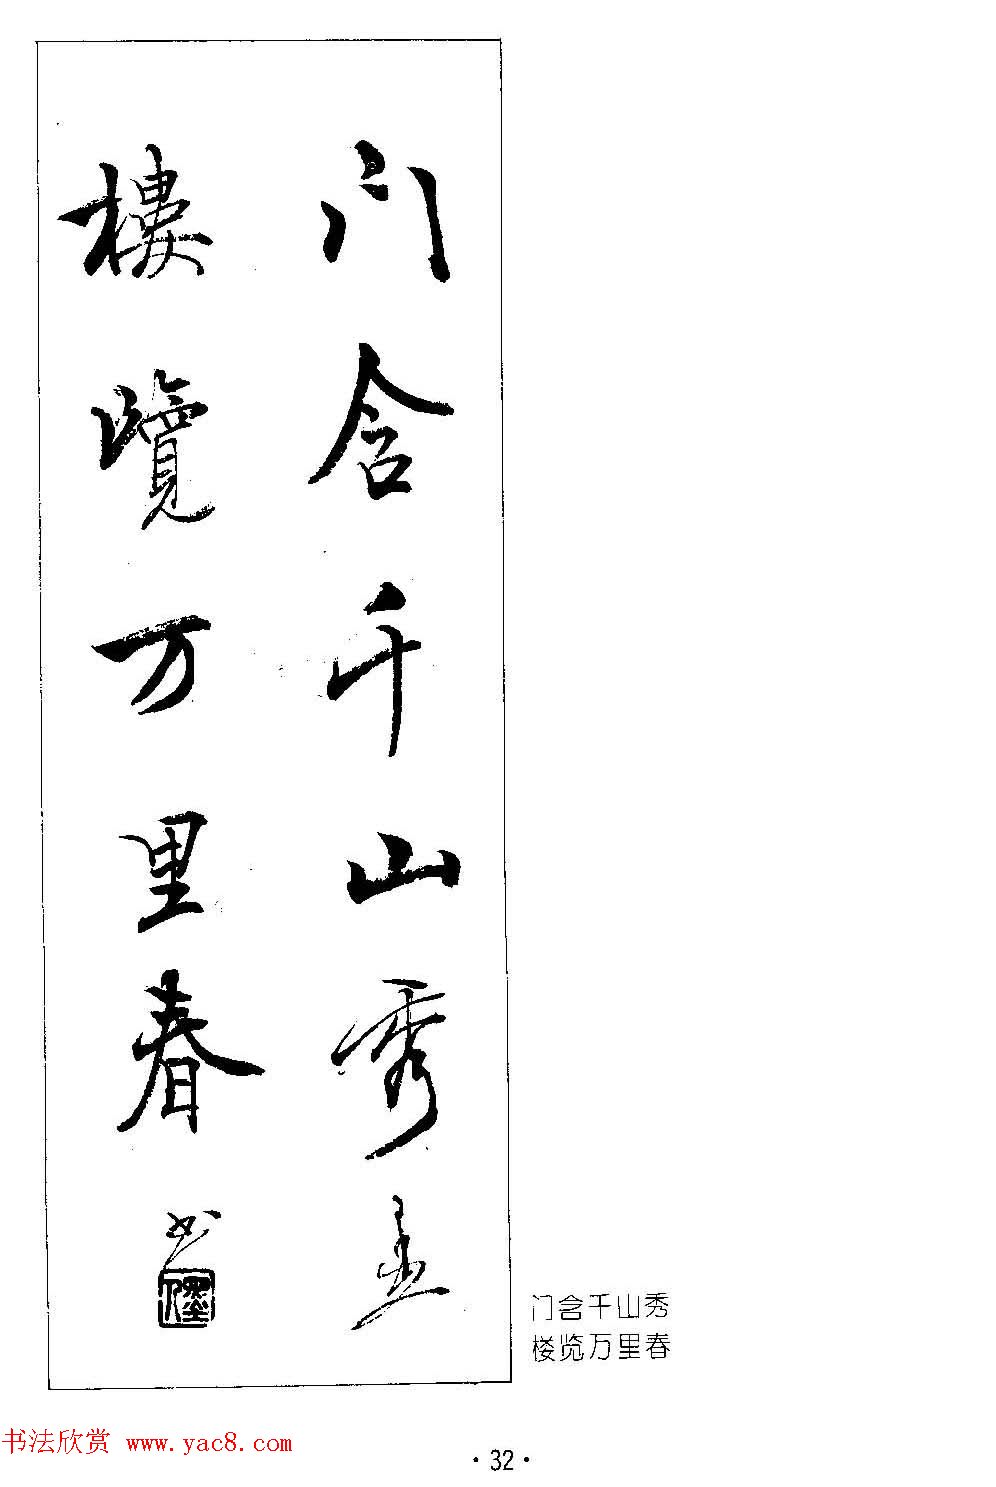 门含千山秀
樓覽万里春
门含千山秀
楼览万里春
书法欣赏 www.yac8.com
·32·